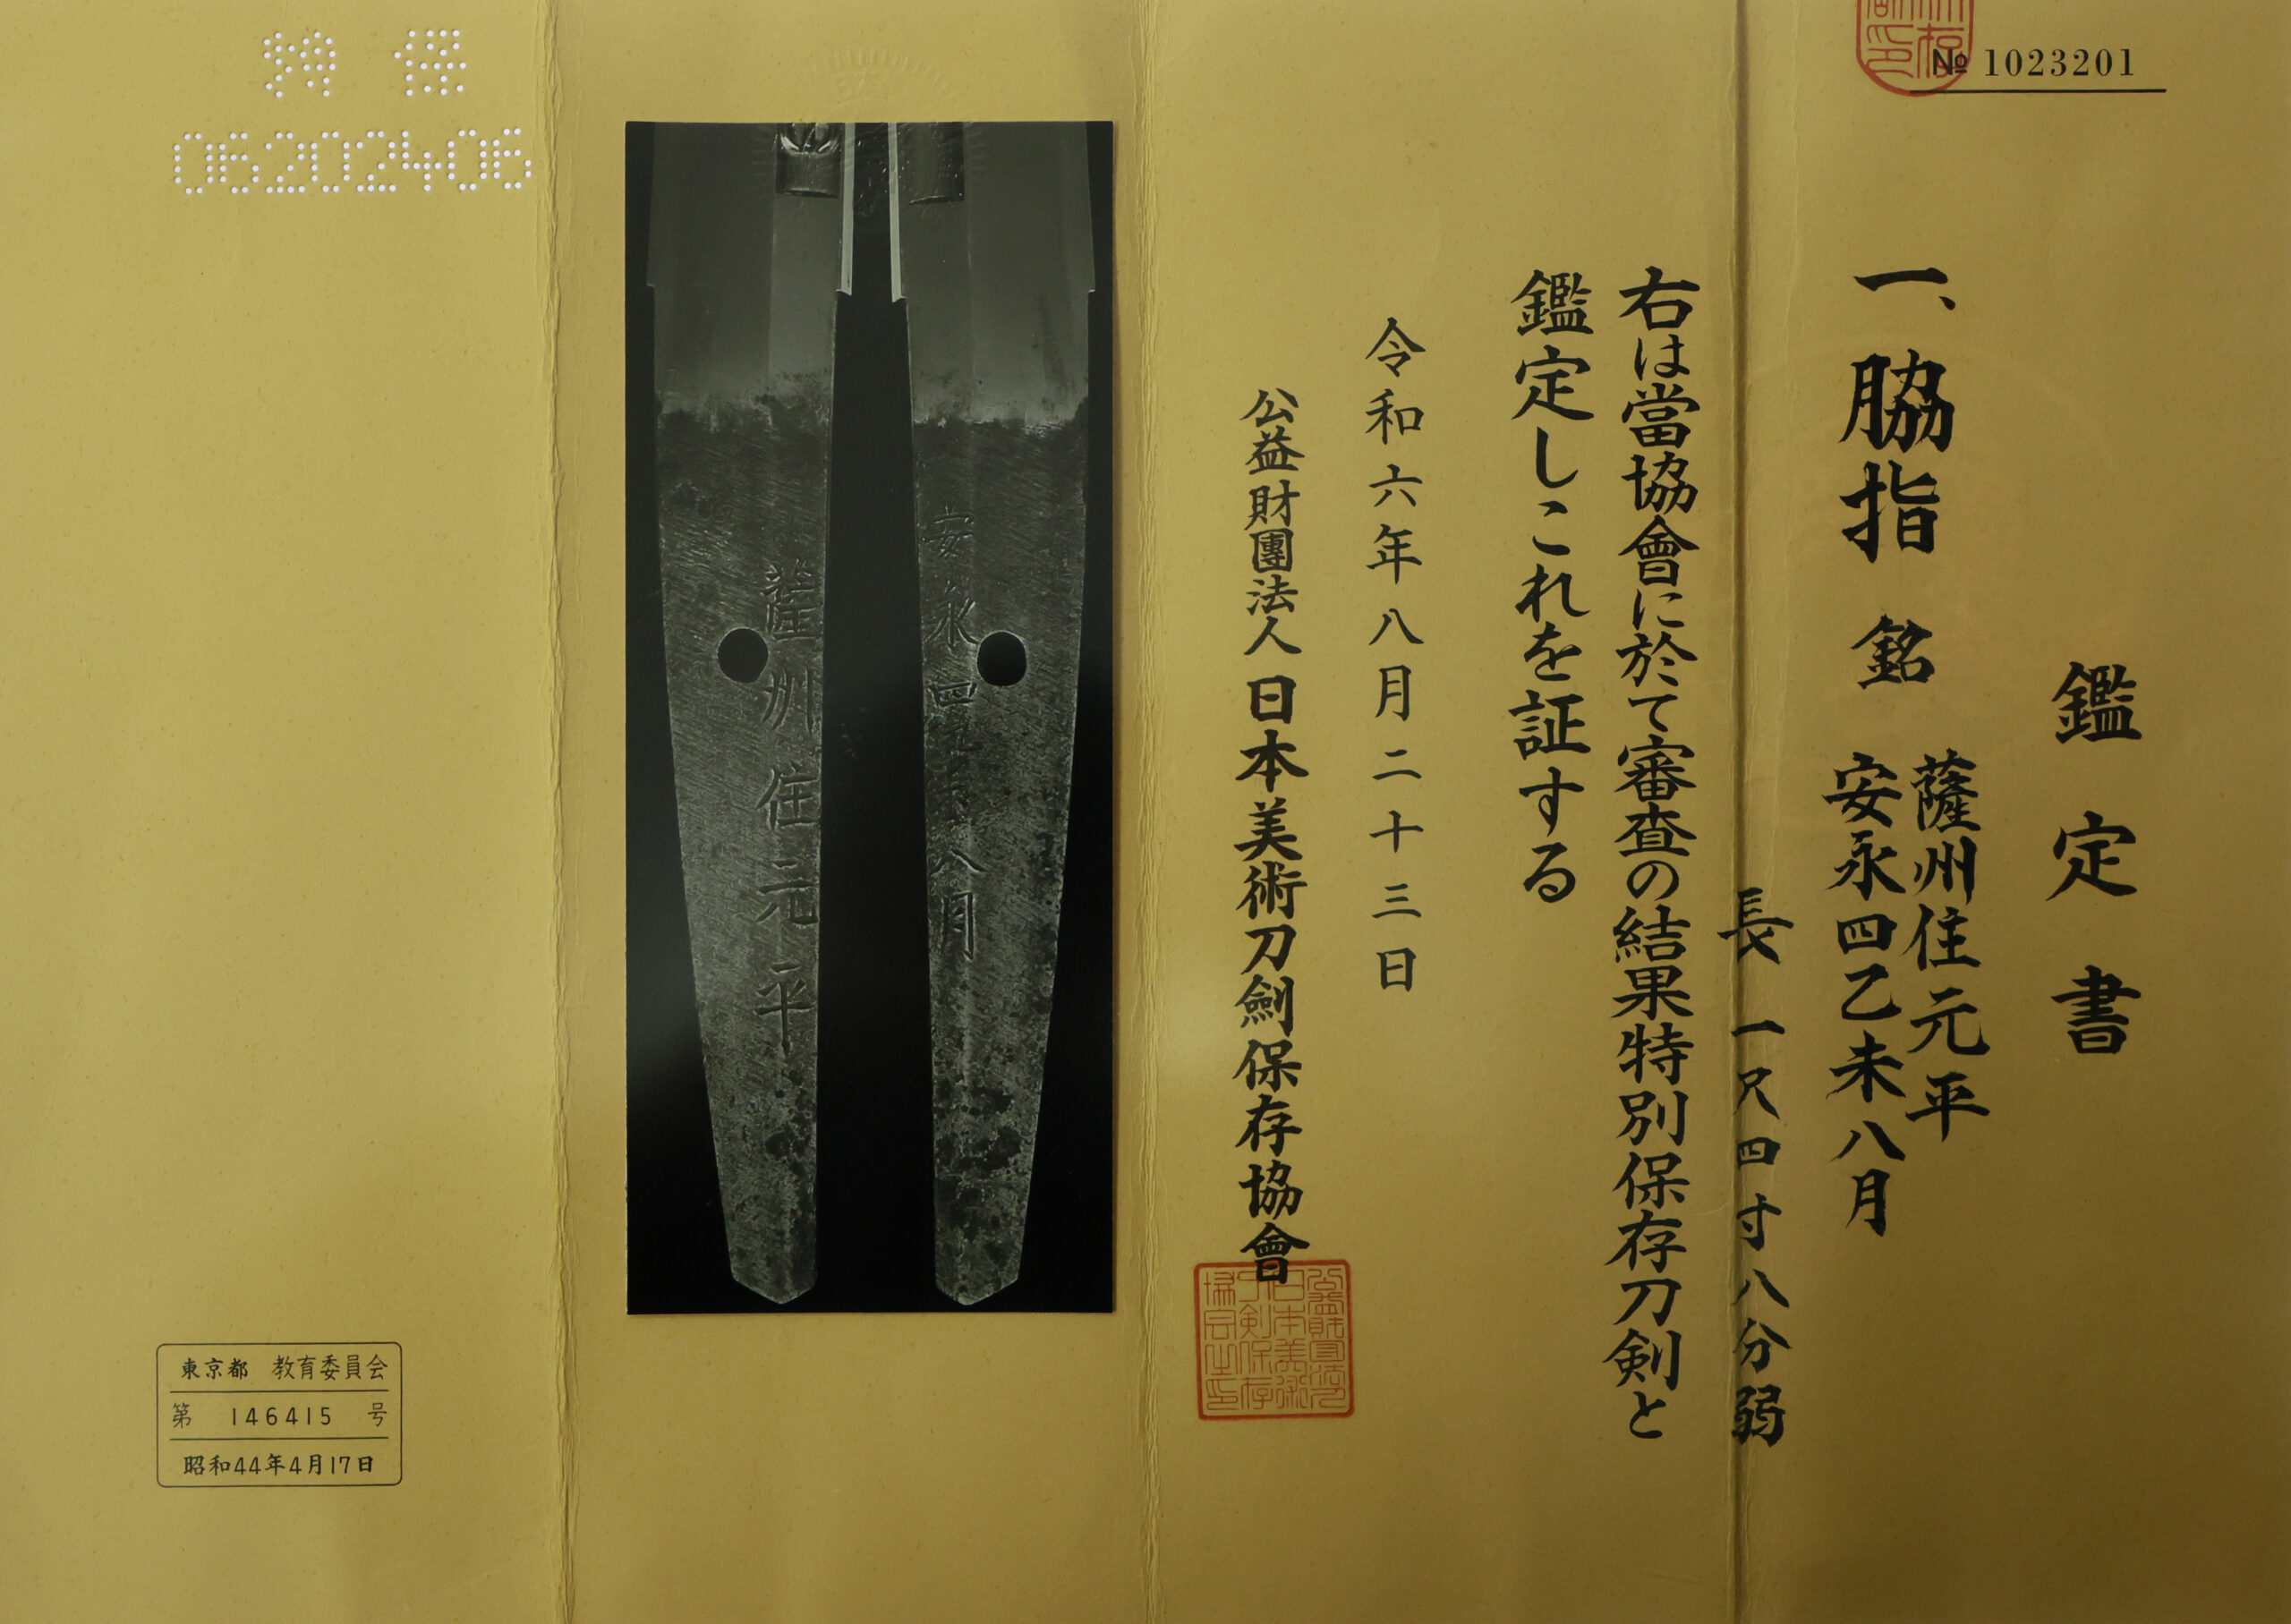 № 1023201
鑑定書
一、脇指 銘 薩州住元平
安永四乙未八月
長一尺四寸八分弱
右は當協會に於て審査の結果特別保存刀剣と
鑑定しこれを証する
令和六年八月二十三日
公益財團法人 日本美術刀劍保存協會
薩州住元平
安永四乙未八月
特保
06202406
東京都 教育委員会
第 146415 号
昭和44年4月17日